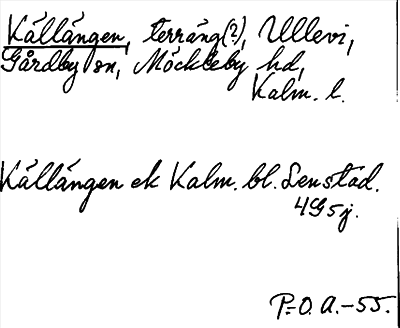 Källängen, terräng(?), Ullevi,
Gårdby sn, Möckleby hd,
Kalm. l.
Källängen ek Kalm. bl. Lenstad.
4G5j.
P.-O. A.-55.